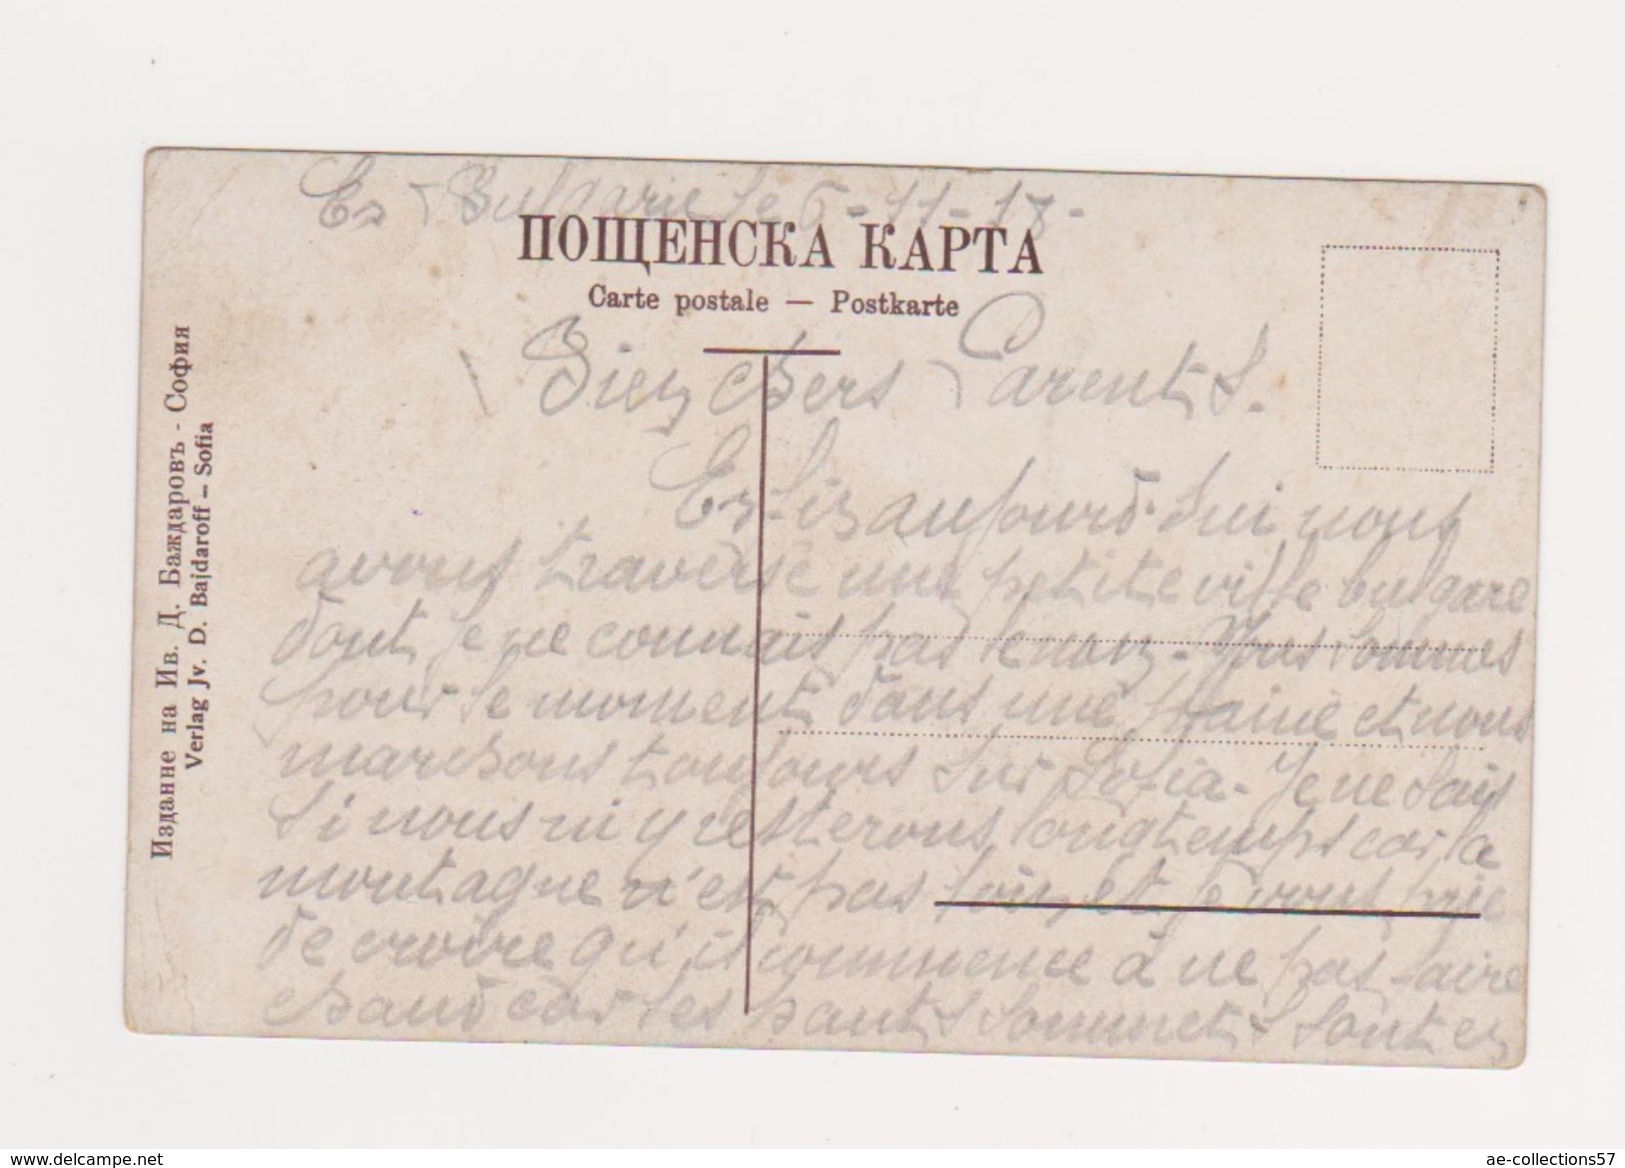 En Bulgarie le 6-11-18-
ПОЩЕНСКА КАРТА
Carte postale — Postkarte
Bien chers Parents.
Enfin aujourd'hui nous
avons traversé une petite ville bulgare
dont je ne connais pas le nom. Nous sommes
pour le moment dans une plaine et nous
marchons toujours sur Sofia. Je ne sais
si nous ni y resterons longtemps car la
montagne n'est pas loin, et je vous prie
de croire qu'il commence à ne pas faire
chaud car les hauts sommets sont en
Издание на Ив. Д. Баждаровъ - София
Verlag Jv. D. Bajdaroff – Sofia
www.delcampe.net
ae-collections57